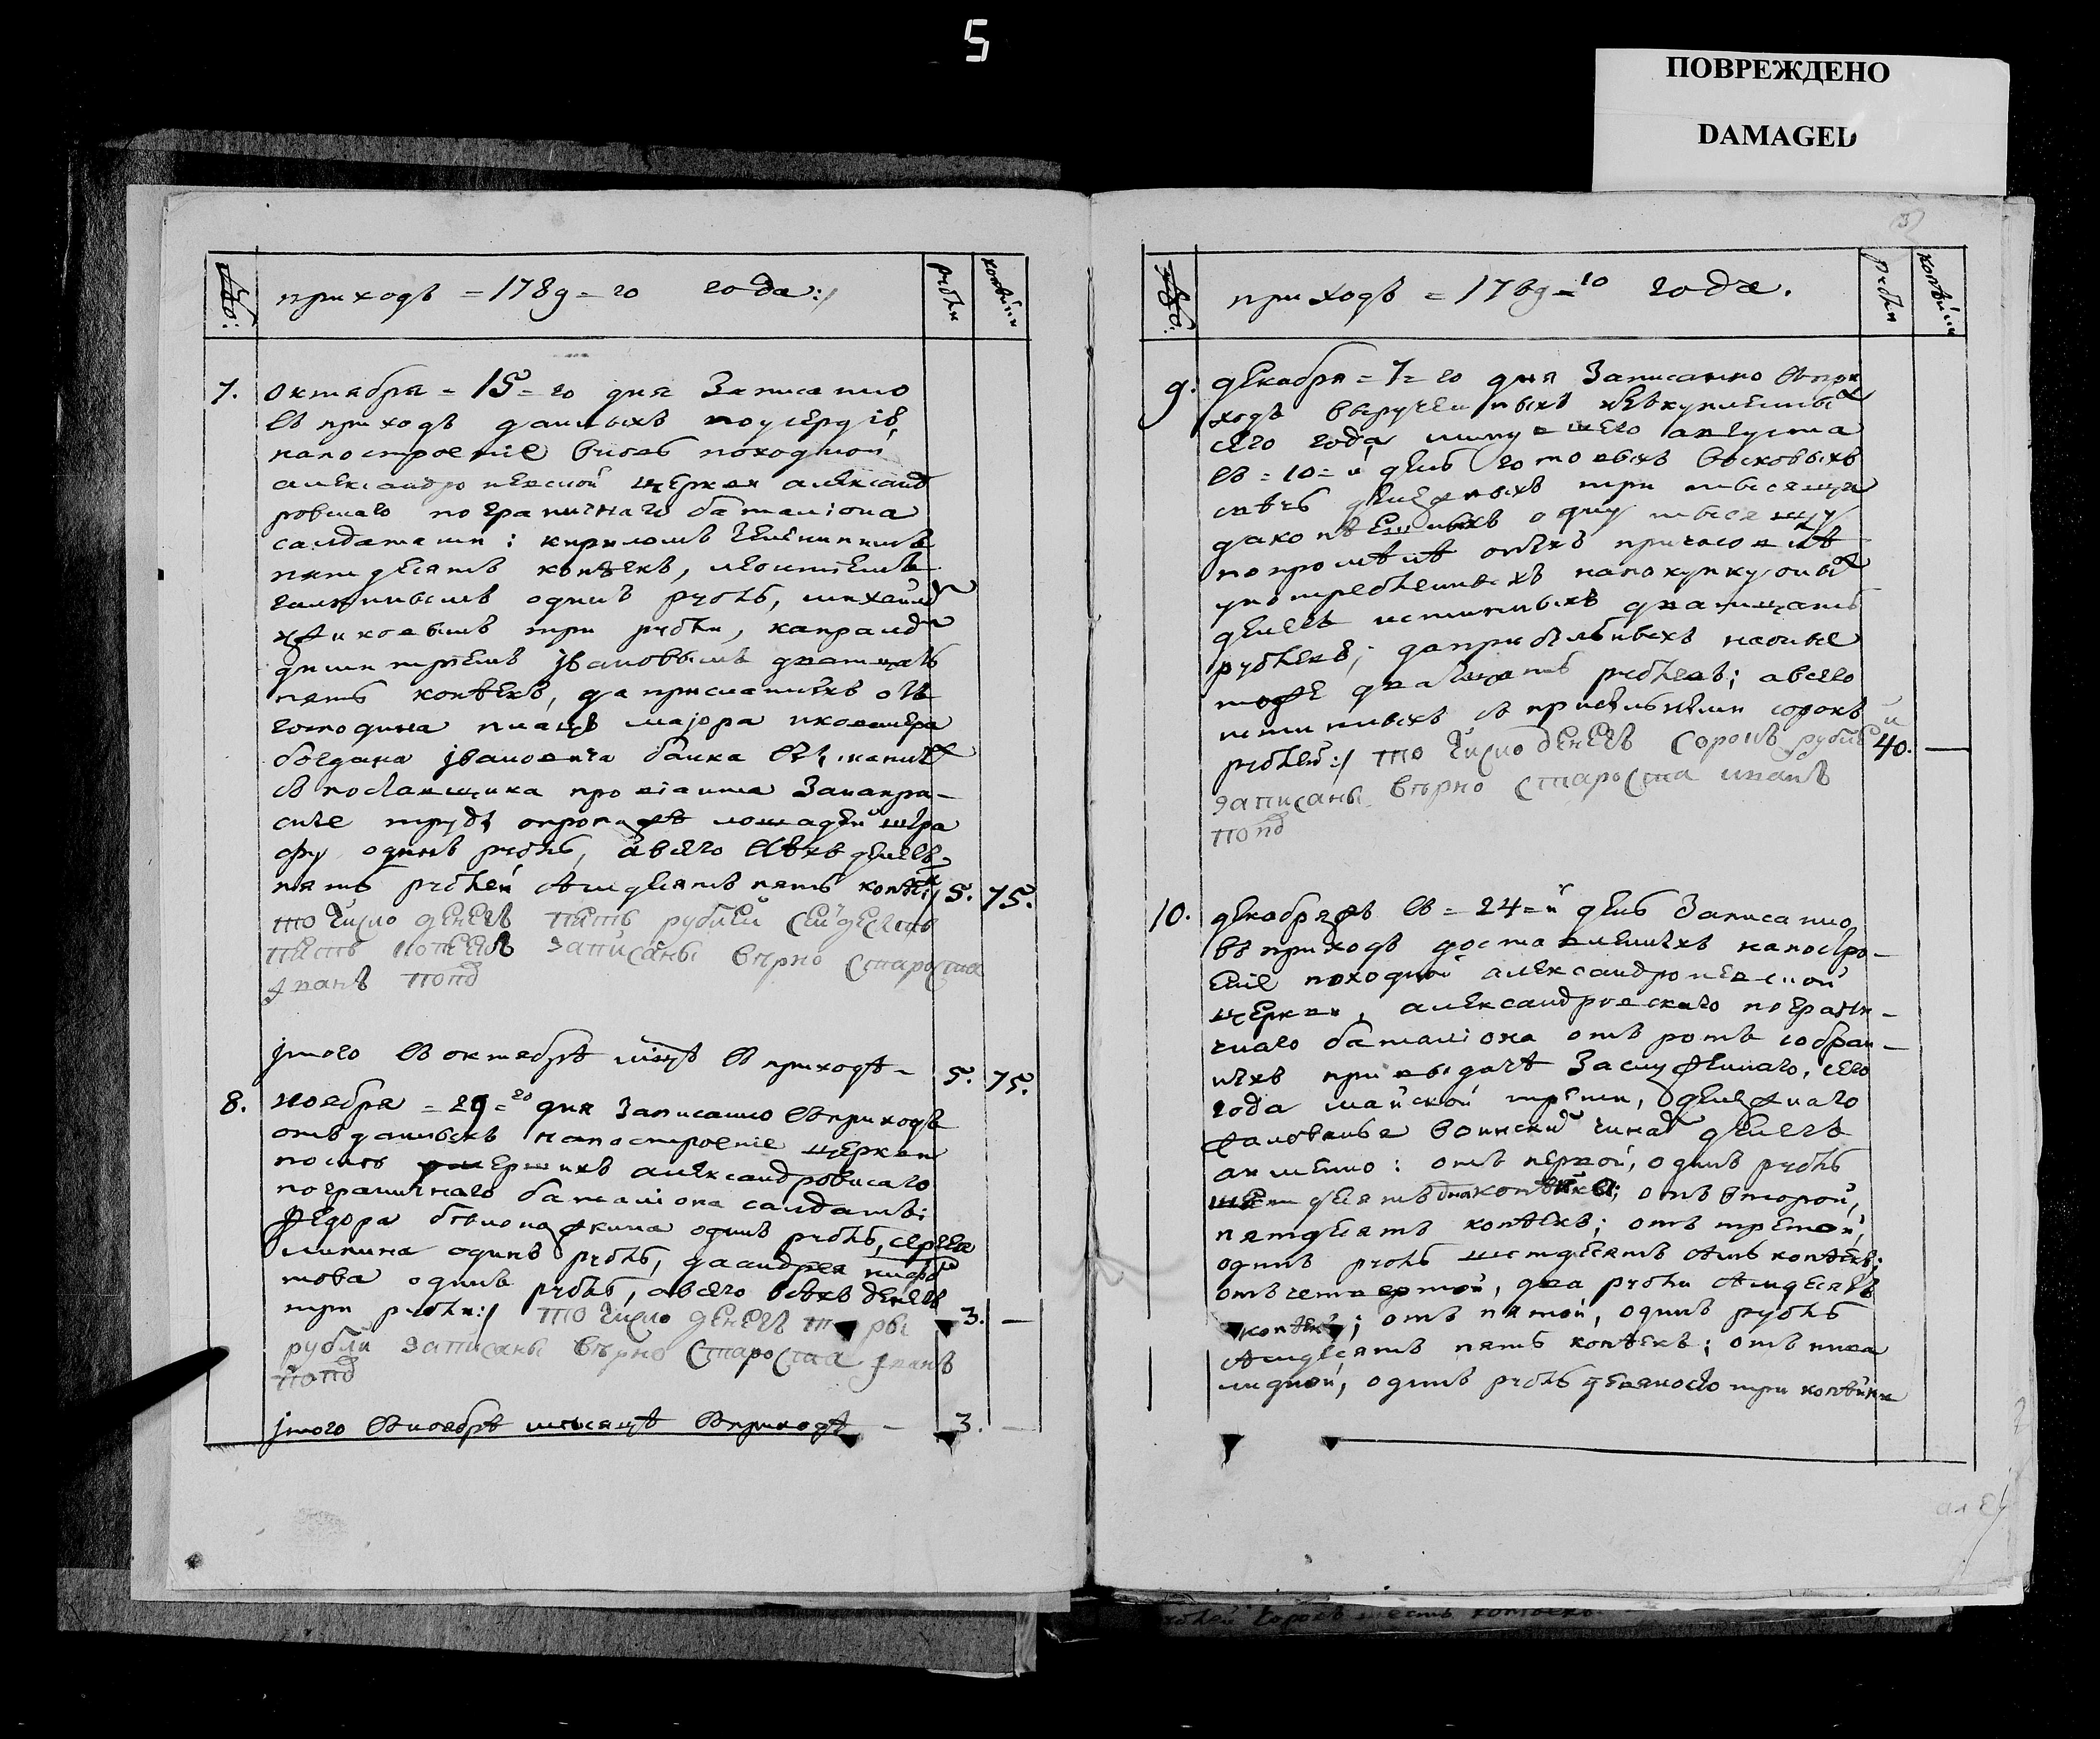 5
ПОВРЕЖДЕНО
DAMAGED
приходъ = 1789 = го года:/
рубли
копѣйки
7. октября = 15 = го дня записанно
въ приходъ данныхъ поусердію,
напостроеніе вновь походной
александроневской церкви александ
ровскаго пограничнаго баталіона
салдатами: кириломъ
пятдесятъ копѣекъ, леонтіемъ
одинъ рубль, михаиломъ
три рубли, капраломъ
димитріемъ јвановымъ дватцать
пять копѣекъ, да присланныхъ отъ
господина плацъ мајора икавалера
богдана јвановича
съ поставщика провіанта
труда лошадей штра
фу одинъ рубль, а всего всѣхъ денегъ
пять рублей семдесятъ пять копѣекъ 5. 75.
то число денегъ пять рублей семдесятъ
пять копеекъ записаны вѣрно староста
јванъ попд
јтого въ октябрѣ мсцѣ въ приходѣ - 5. 75.
8. ноября = 29 = го дня записанно въ приходъ
отъданныхъ напостроеніе церкви
послѣ умершихъ александровскаго
пограничнаго баталіона салдатъ:
федора одинъ рубль, сергея
липина одинъ рубль, да андрея
това одинъ рубль, авсего всѣхъ денегъ
три рубли:/ то число денегъ три 3. —
рубли записаны вѣрно староста јванъ
попд
јтого въ ноябрѣ месяцѣ въ приходѣ — 3. —
приходъ = 1789 = го года.
рубли
копѣйки
9. декабря = 7 = го дня записанно въ при
ходъ вырученныхъ
сего года минувшего августа
въ = 10 = й день готовыхъ восковыхъ
свѣчъ три тысящи
да копѣешныхъ одну тысящу
употребленныхъ напокупку оныхъ
денегъ истинныхъ дватцать
рублевъ; да прибыльныхъ наоные
тоже дватцать рублевъ; авсего
истинныхъ съ прибыльными сорокъ
рублей:/ то число денегъ сорокъ рублей 40. —
записаны вѣрно староста иванъ
попд
10. декабря въ = 24 = й день записанно
въ приходъ доставленныхъ напостро-
еніе походной александроневской
церкви, александровскаго погранич-
наго баталіона отъ ротъ собран-
ныхъ при выдачѣ заслуженнаго, сего
года майской трети, денежнаго
жалованья воинскимъ чинамъ денегъ
аименно: отъ первой, одинъ рубль
шестдесятъ двѣ копѣйки; отъ второй,
пятдесятъ копѣекъ; отъ третей,
одинъ рубль шестдесятъ семь копѣекъ;
отъ четвертой, два рубли семдесятъ
копѣекъ; отъ пятой, одинъ рубль
семдесятъ пять копѣекъ; отъ инва
лидной, одинъ рубль девяносто три копѣйки
рублей сорокъ шесть копѣекъ